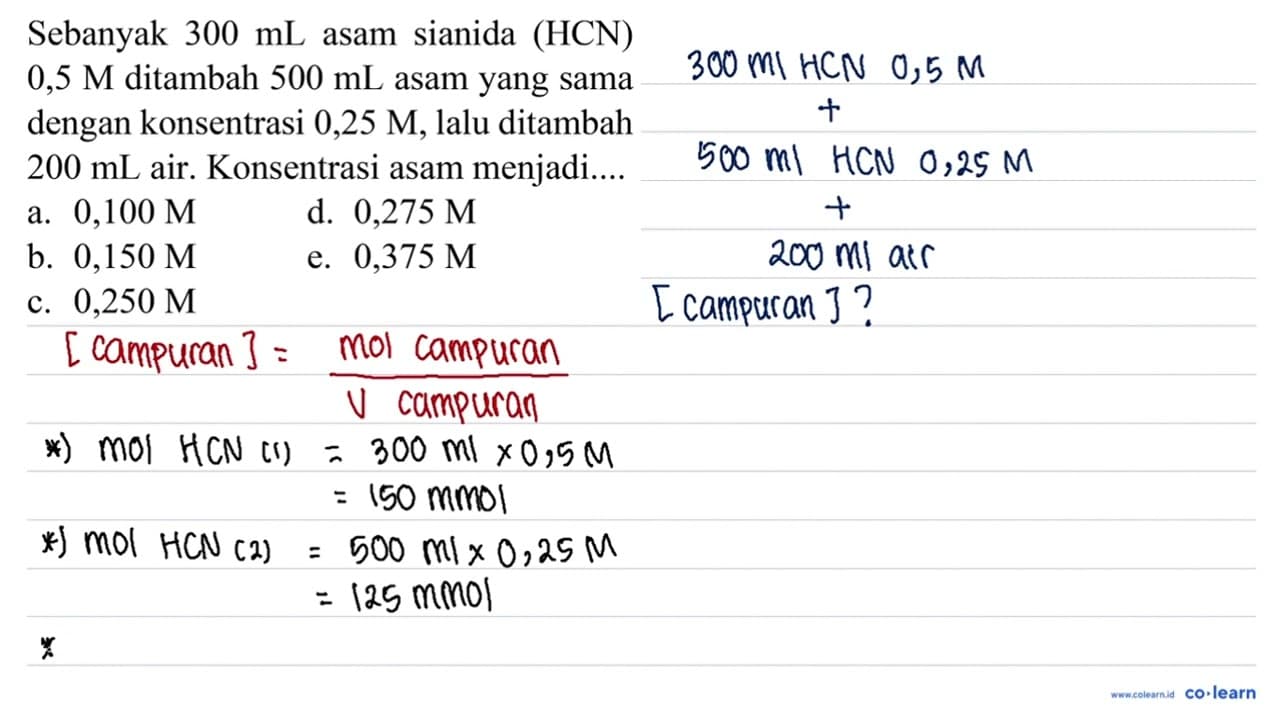 Sebanyak 300 mL asam sianida (HCN)
0,5 M ditambah 500 mL asam yang sama
dengan konsentrasi 0,25 M, lalu ditambah
200 mL air. Konsentrasi asam menjadi....
a. 0,100 M d. 0,275 M
b. 0,150 M e. 0,375 M
c. 0,250 M
300 ml HCN 0,5 M
+
500 ml HCN 0,25 M
+
200 ml air
[campuran]?
[campuran] = mol campuran
V campuran
*) mol HCN (1) = 300 ml x 0,5 M
= 150 mmol
*) mol HCN (2) = 500 ml x 0,25 M
= 125 mmol
*
www.colearn.id co·learn